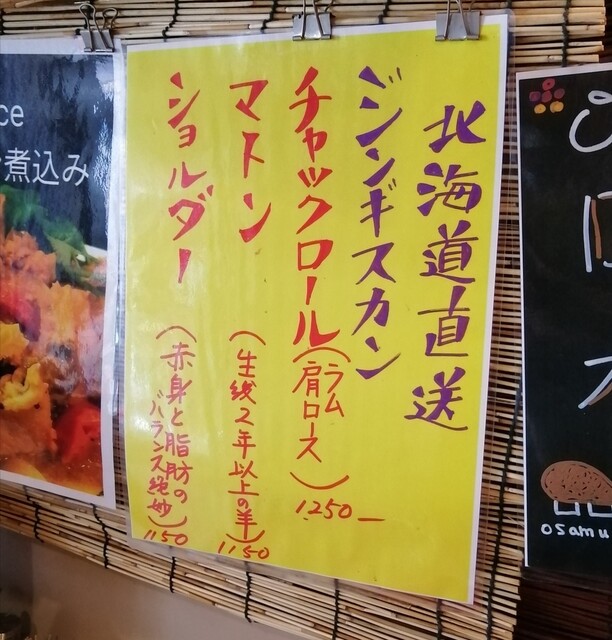 北海道直送
ジンギスカン
チャックロール(ラム肩ロース)
1250ー
マトン(生後2年以上の羊)
1150
ショルダー(赤身と脂肪のバランス絶妙)
1150
ce
煮込み
osamu